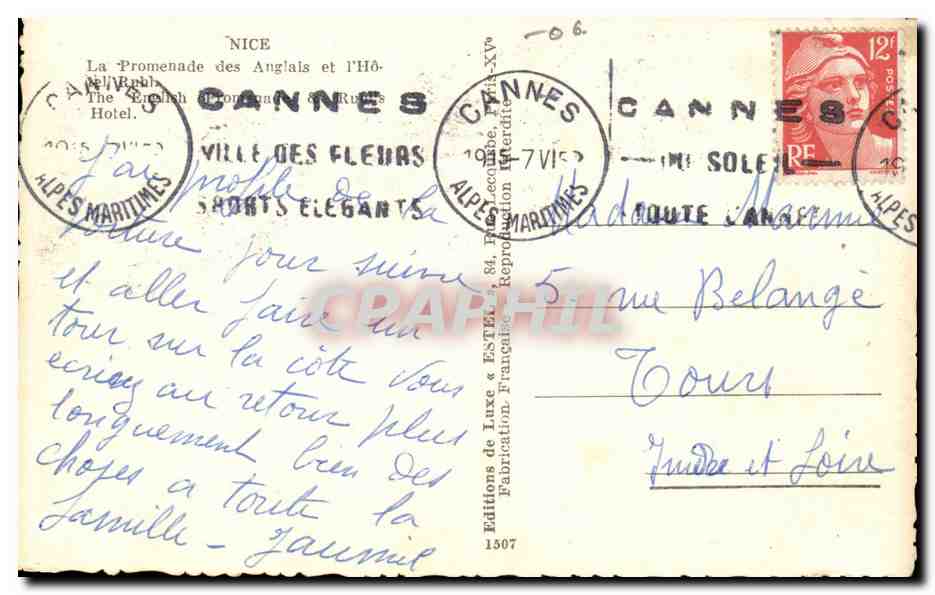 NICE
La Promenade des Anglais et l'Hô-
tel Ruhl.
The English Promenade Ruhl's
Hotel.
CANNES
ALPES MARITIMES
CANNES
VILLE DES FLEURS
SPORTS ELEGANTS
CANNES
1915-7VI
ALPES MARITIMES
CANNES
DU SOLEIL
TOUTE L'ANNEE
12F
POSTES
RF
-06.
J'ai profité de la
voiture pour suivre
et aller faire un
tour sur la côte Vous
écrirez au retour plus
longuement bien des
choses a toute la
famille -
Madame
5 rue Belangé
Tours
Indre et Loire
Editions de Luxe « ESTEL », 84, Fg Lecourbe, Paris-XVe
Fabrication Française - Reproduction Interdite
1507
CPAPHIL